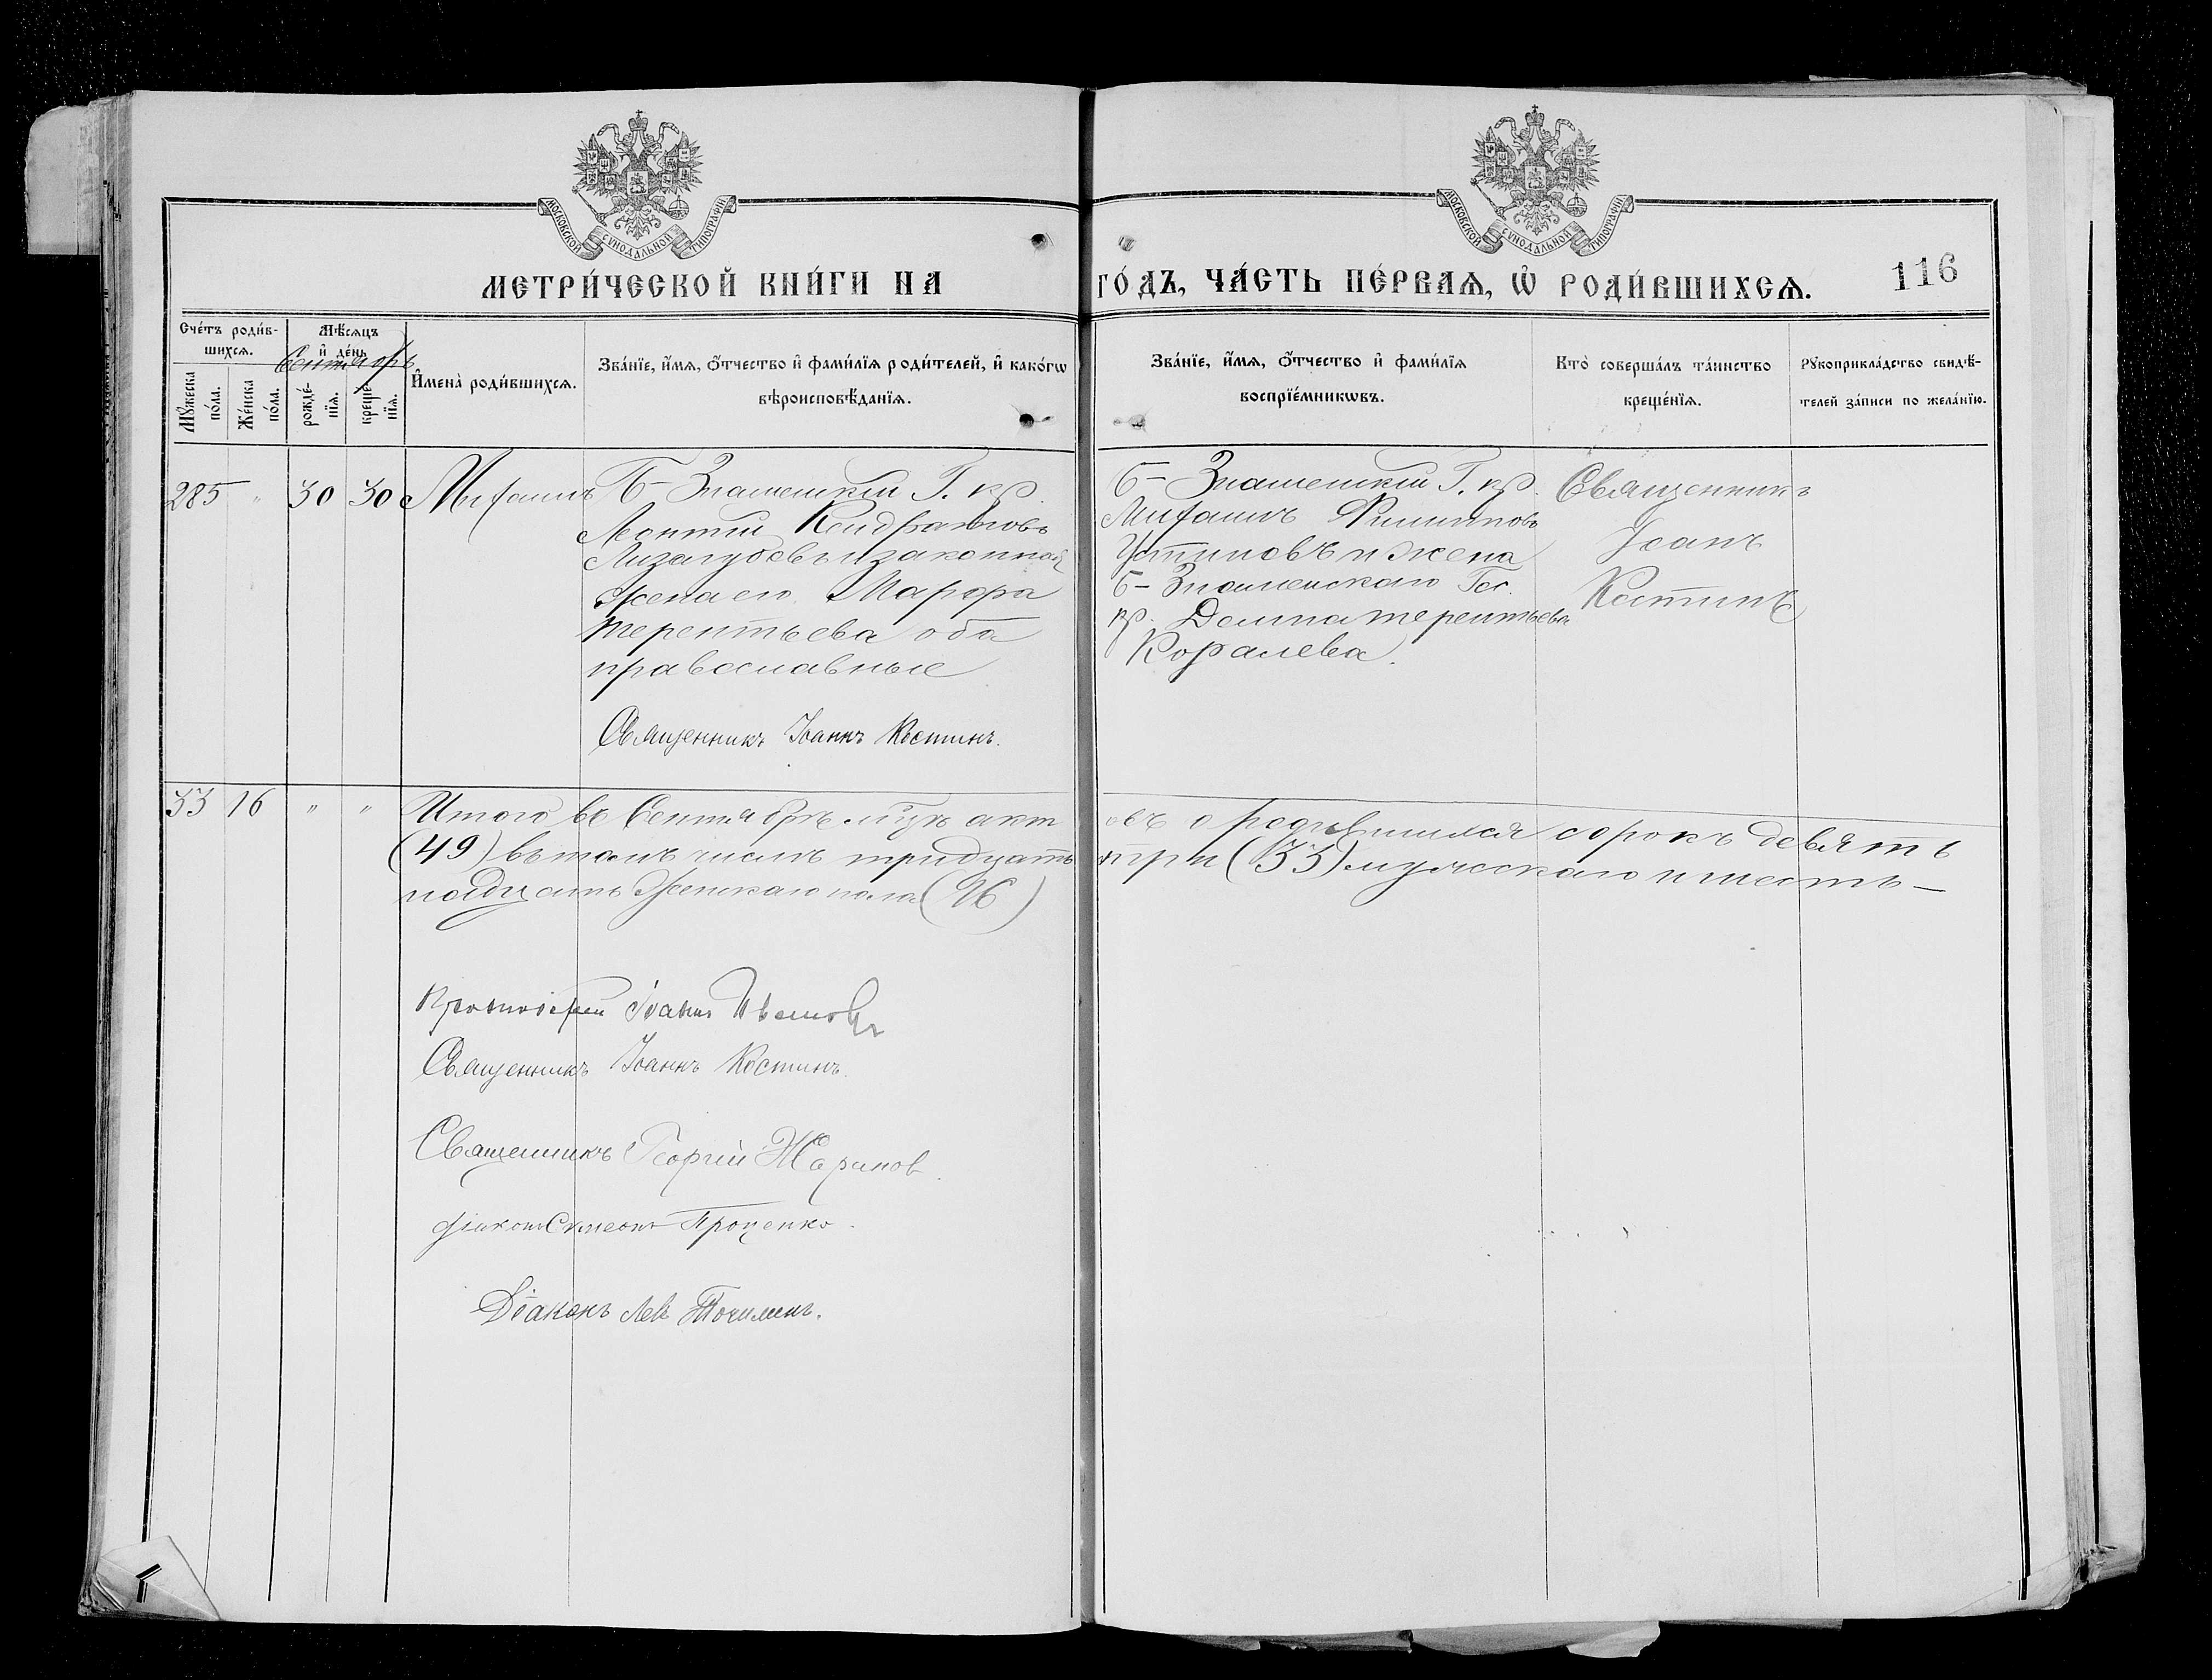 МОСКОВСКОЙ СѴНОДАЛЬНОЙ ТИПОГРАФІИ
МОСКОВСКОЙ СѴНОДАЛЬНОЙ ТИПОГРАФІИ
МЕТРИ́ЧЕСКОЙ КНИ́ГИ НА ГО́ДЪ, ЧА́СТЬ ПЕ́РВАѦ, Ѡ҆ РОДИ́ВШИХСѦ.
116
Сче́тъ роди́в-
шихсѧ.
Мѣ́сѧцъ
и҆ де́нь
Сентябрь
Мꙋ́жеска
по́ла.
Же́нска
по́ла.
рожде́-
нїѧ.
креще́-
нїѧ.
И҆мена̀ роди́вшихсѧ.
Зва́нїе, и҆́мѧ, ѻ҆́тчество и҆ фами́лїѧ роди́телей, и҆ како́гѡ
вѣроисповѣ́данїѧ.
Зва́нїе, и҆́мѧ, ѻ҆́тчество и҆ фами́лїѧ
воспрїе́мникѡвъ.
Кто̀ соверша́лъ та́инство
креще́нїѧ.
Рꙋкоприкла́дство свидѣ́-
телей за́писи по жела́нїю.
285 " 30 30 Михаилъ
Б- Знаменскій Г. кр.
Леонтій Кондратовъ
Лизагубовъ и законная
жена его Марфа
Терентьева оба
православные
Священникъ Іоаннъ Костинъ.
Б- Знаменскій Г. кр.
Михаилъ Филиповъ
Устиновъ и жена
Б- Знаменскаго Гос.
кр. Домна терентьева
Королева.
Священникъ
Іоанъ
Костинъ
33 16 " " Итого въ Сентябрѣ м-цѣ актовъ о родившихся сорокъ девять
(49) въ томъ числѣ тридцать три (33) мужескаго и шест-
надцать Женскаго пола (16)
Протоіерей Іоаннъ
Священникъ Іоаннъ Костинъ.
Священникъ Георгій Жариновъ
Діаконъ Симеонъ Проценко.
Діаконъ Левъ Точилинъ.